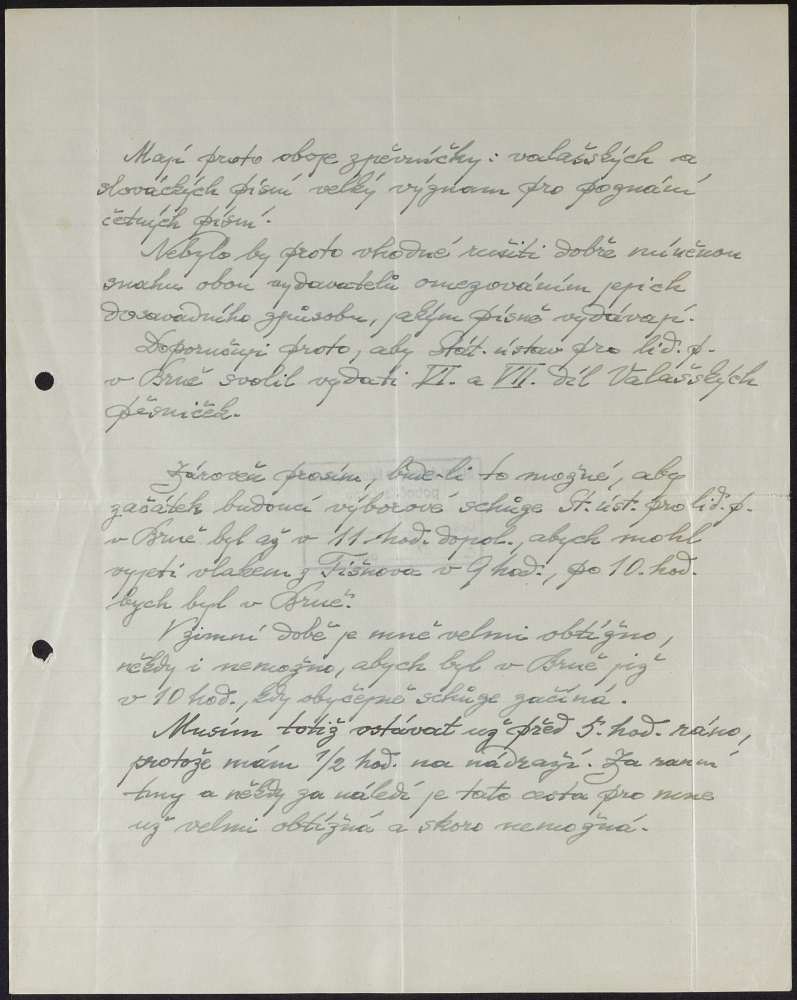 Mají proto oboje zpěvníčky: valašských a
slováckých písní velký význam pro poznání
četných písní.
Nebylo by proto vhodné rušiti dobře míněnou
snahu obou vydavatelů omezováním jejich
dosavadního způsobu, jakým písně vydávají.
Doporučuji proto, aby Stát. ústav pro lid. p.
v Brně svolil vydati VI. a VII. díl Valašských
pěsniček.
Zároveň prosím, bude-li to možné, aby
začátek budoucí výborové schůze St. úst. pro lid. p.
v Brně byl až v 11 hod. dopol., abych mohl
vyjeti vlakem z Tišnova v 9 hod., po 10. hod.
bych byl v Brně.
V zimní době je mně velmi obtížno,
někdy i nemožno, abych byl v Brně již
v 10 hod., kdy obyčejně schůze začíná.
Musím totiž vstávat už před 5. hod. ráno,
protože mám 1/2 hod. na nádraží. Za ranní
tmy a někdy za náledí je tato cesta pro mne
už velmi obtížná a skoro nemožná.